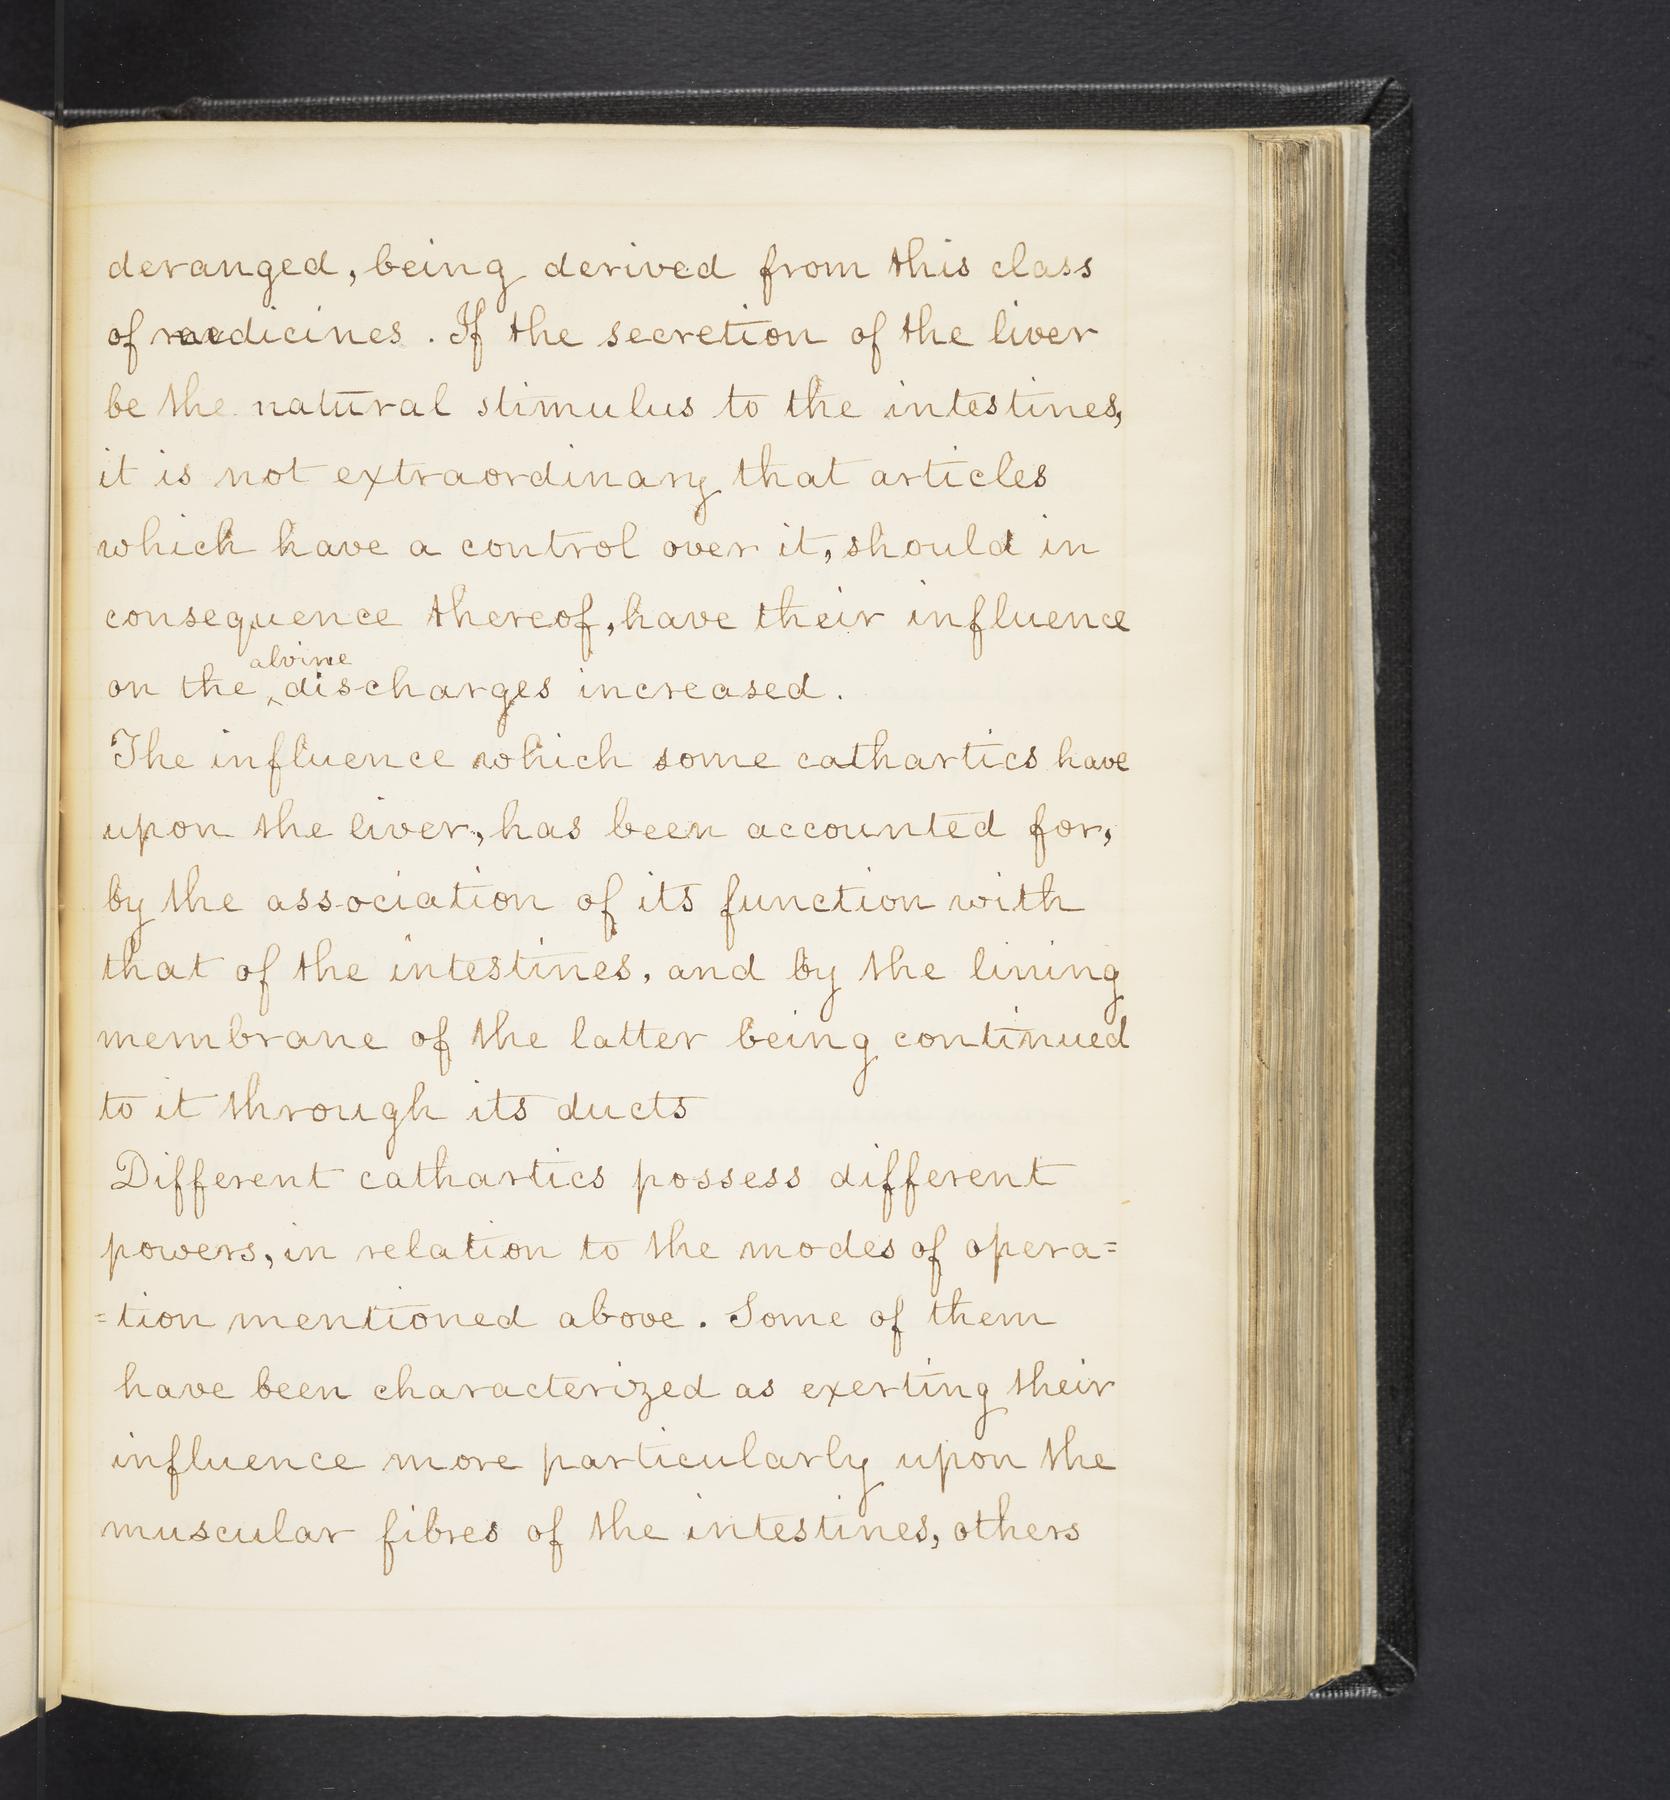 deranged, being derived from this class
of medicines. If the secretion of the liver
be the natural stimulus to the intestines,
it is not extraordinary that articles
which have a control over it, should in
consequence thereof, have their influence
alvine
on the ‸ discharges increased.
The influence which some cathartics have
upon the liver, has been accounted for,
by the association of its function with
that of the intestines, and by the lining
membrane of the latter being continued
to it through its ducts
Different cathartics possess different
powers, in relation to the modes of opera=
=tion mentioned above. Some of them
have been characterized as exerting their
influence more particularly upon the
muscular fibres of the intestines, others